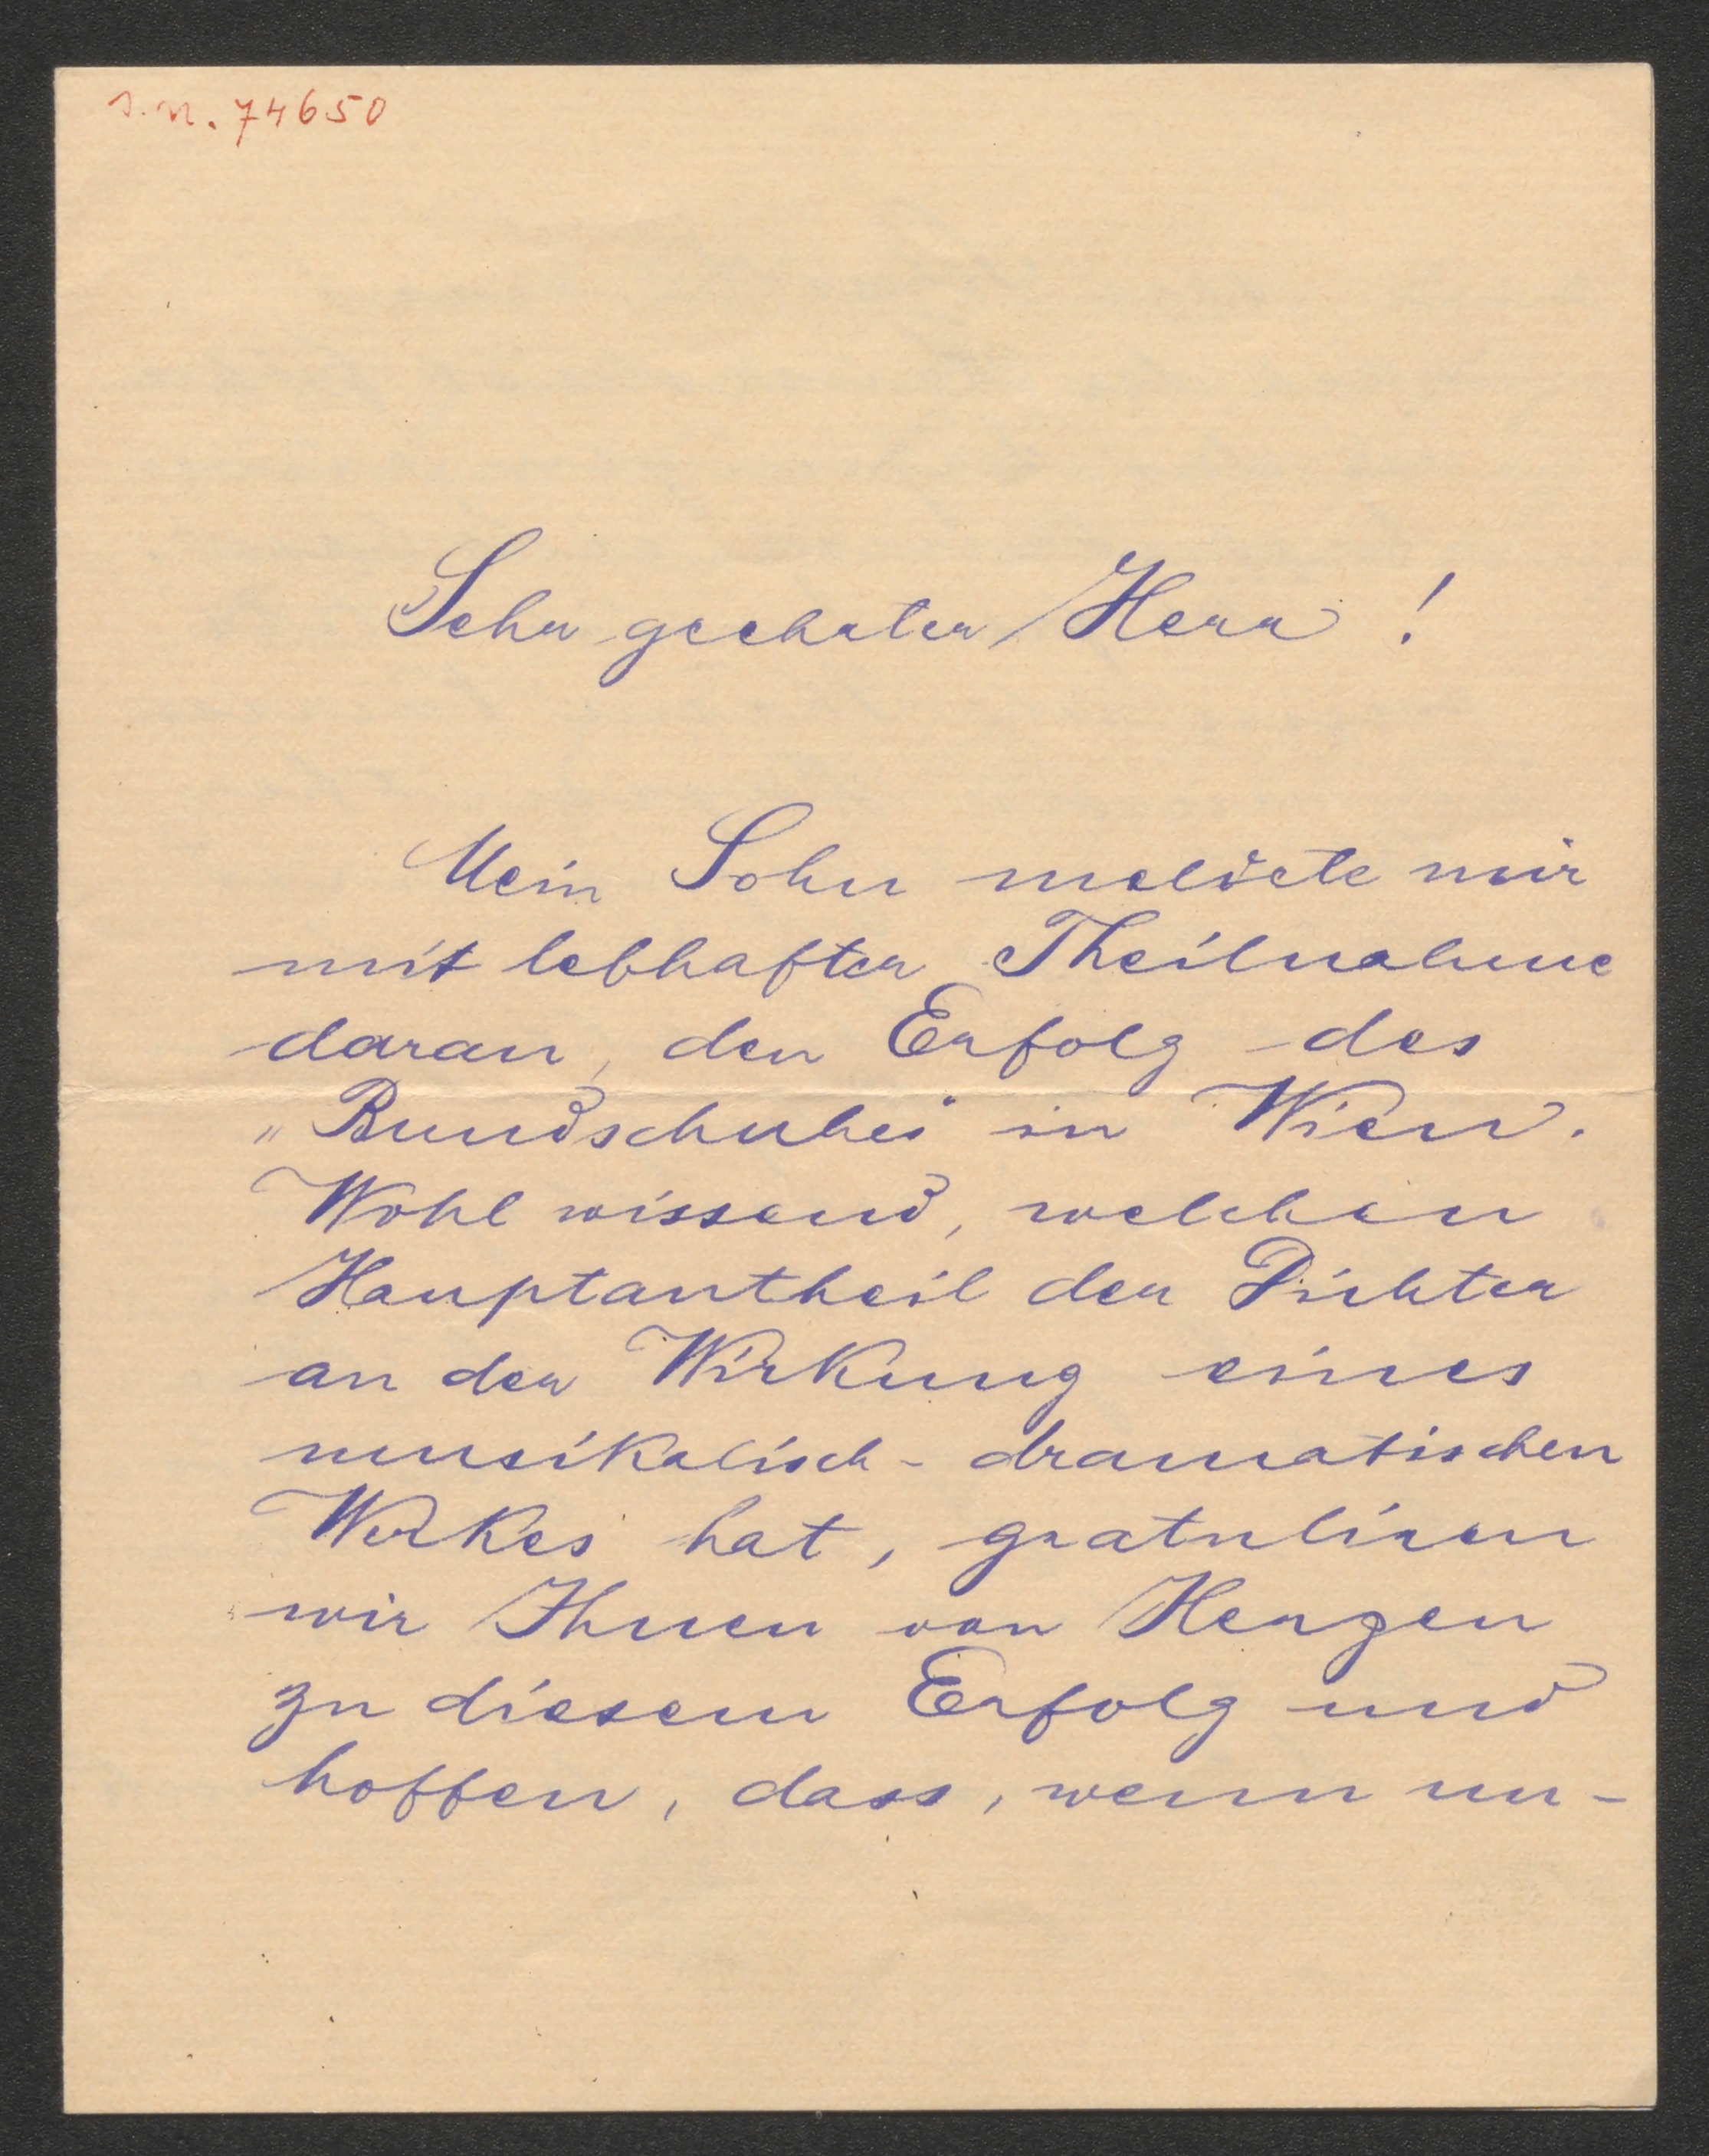 J.N. 74650
Sehr geehrter Herr !
Mein Sohn meldete mir
mit lebhafter Theilnahme
daran, den Erfolg des
„Bundschuhes" in Wien.
Wohl wissend, welchen
Hauptantheil der Dichter
an der Wirkung eines
musikalisch - dramatischen
Werkes hat, gratuliren
wir Ihnen von Herzen
zu diesem Erfolg und
hoffen, dass, wenn un-